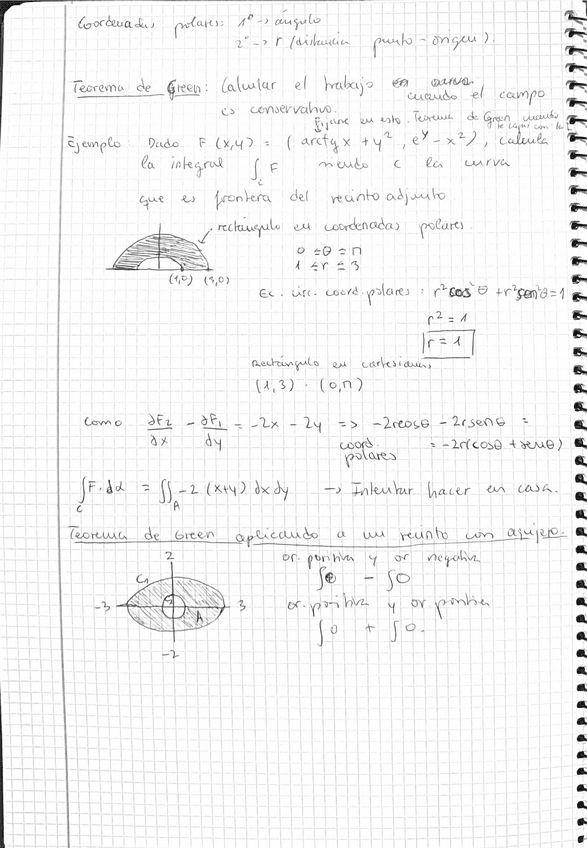 Coordenadas polares: 1º -> ángulo
2º -> r (distancia punto-origen).
Teorema de Green: Calcular el trabajo cuando el campo
es conservativo.
Fijarse en esto. Teorema de Green cuando
Ejemplo Dado F(x,y) = (arctg x + y², e^y - x²), calcula
la integral ∫_C F siendo c la curva
que es frontera del recinto adjunto
rectángulo en coordenadas polares.
0 ≤ θ ≤ π
1 ≤ r ≤ 3
(1,0) (3,0)
Ec. circ. coord. polares: r² cos² θ + r² sen² θ = 1
r² = 1
r = 1
Rectángulo en cartesianas
(1,3) · (0,π)
Como ∂F2/∂x - ∂F1/∂y = -2x - 2y => -2rcosθ - 2rsenθ =
coord. polares = -2r(cosθ + senθ)
∫_C F·dα = ∬_A -2(x+y) dx dy -> Intentar hacer en casa.
Teorema de Green aplicando a un recinto con agujero.
2
or. positiva y or negativa
-3 A 3
∫ - ∫
or. positiva y or. positiva
∫ + ∫.
-2